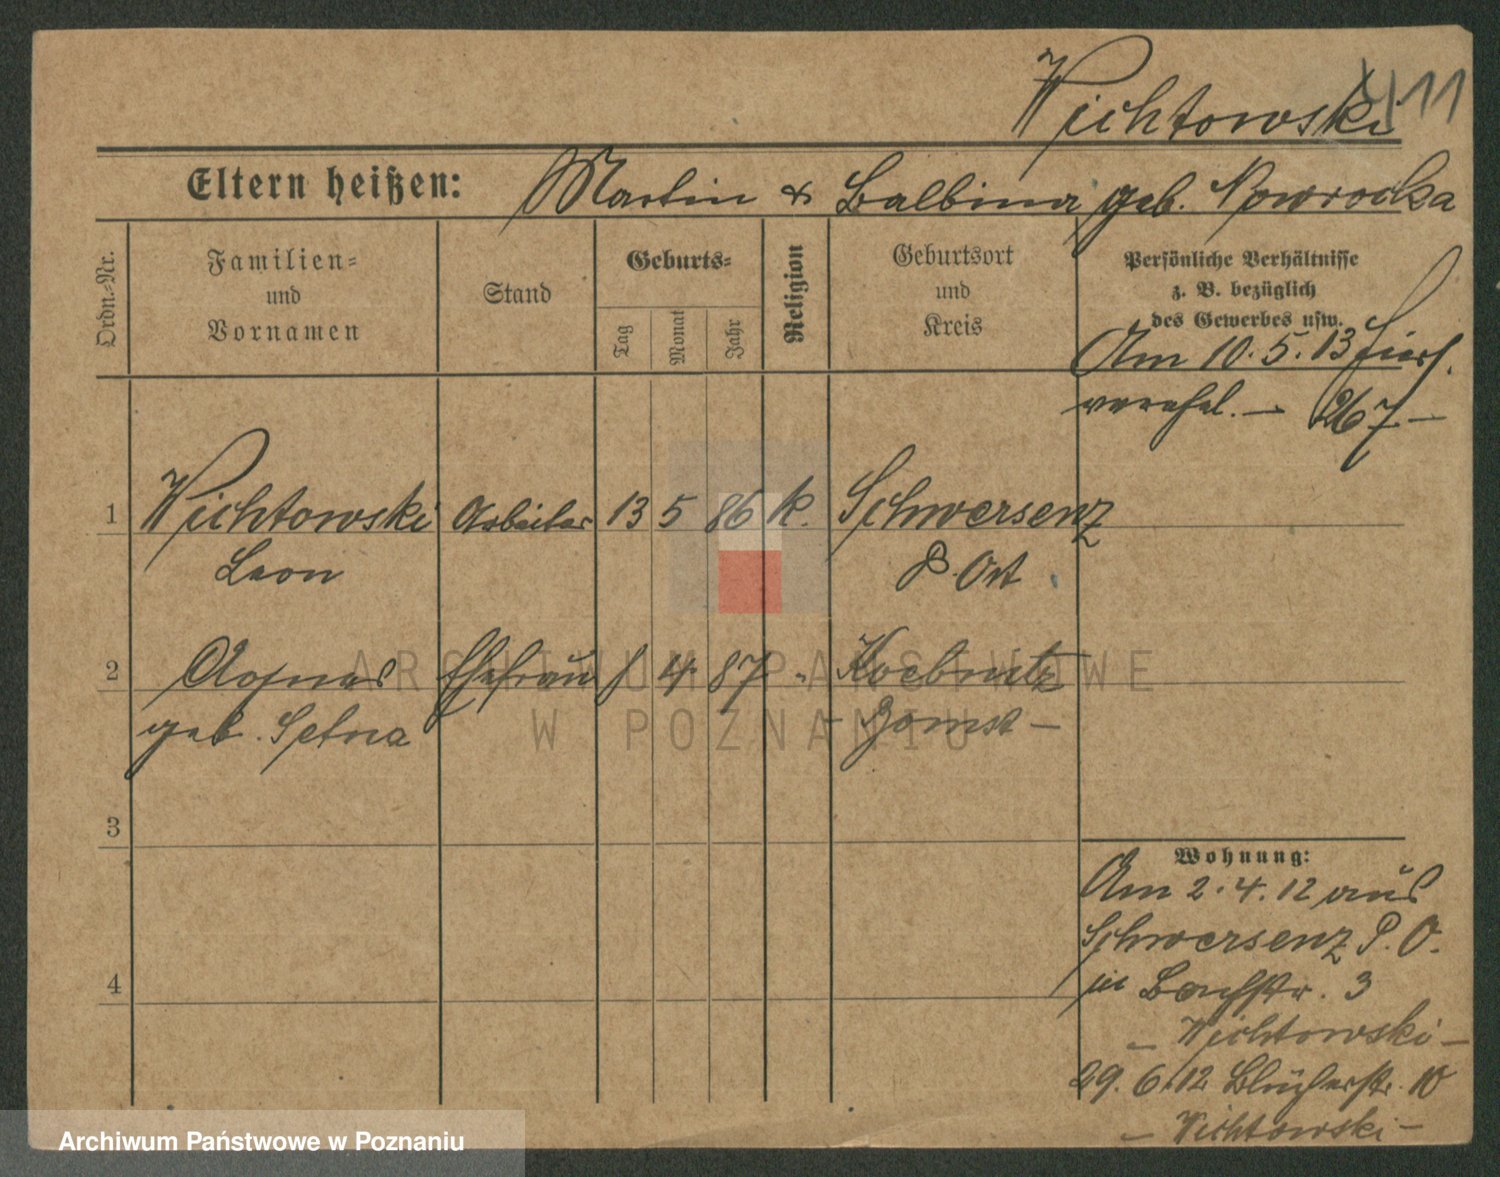 Wichtowski
11
Eltern heißen: Martin & Balbina geb. Nowrocka
Ordn.-Nr.
Familien-
und
Vornamen
Stand
Geburts-
Tag
Monat
Jahr
Religion
Geburtsort
und
Kreis
Persönliche Verhältnisse
z. B. bezüglich
des Gewerbes usw.
Am 10. 5. 13 hier
verehel. — 267 —
1 Wichtowski Arbeiter 13 5 86 k. Schwersenz
Leon P. Ost
2 Agnes Ehefrau 8 4 87 " Koebnitz
geb. Setna – Bomst –
3
4
Wohnung:
Am 2. 4. 12 aus
Schwersenz P. O.
in Bachstr. 3
– Wichtowski –
29. 6. 12 Blücherstr. 10
– Wichtowski –
ARCHIWUM PAŃSTWOWE
W POZNANIU
Archiwum Państwowe w Poznaniu